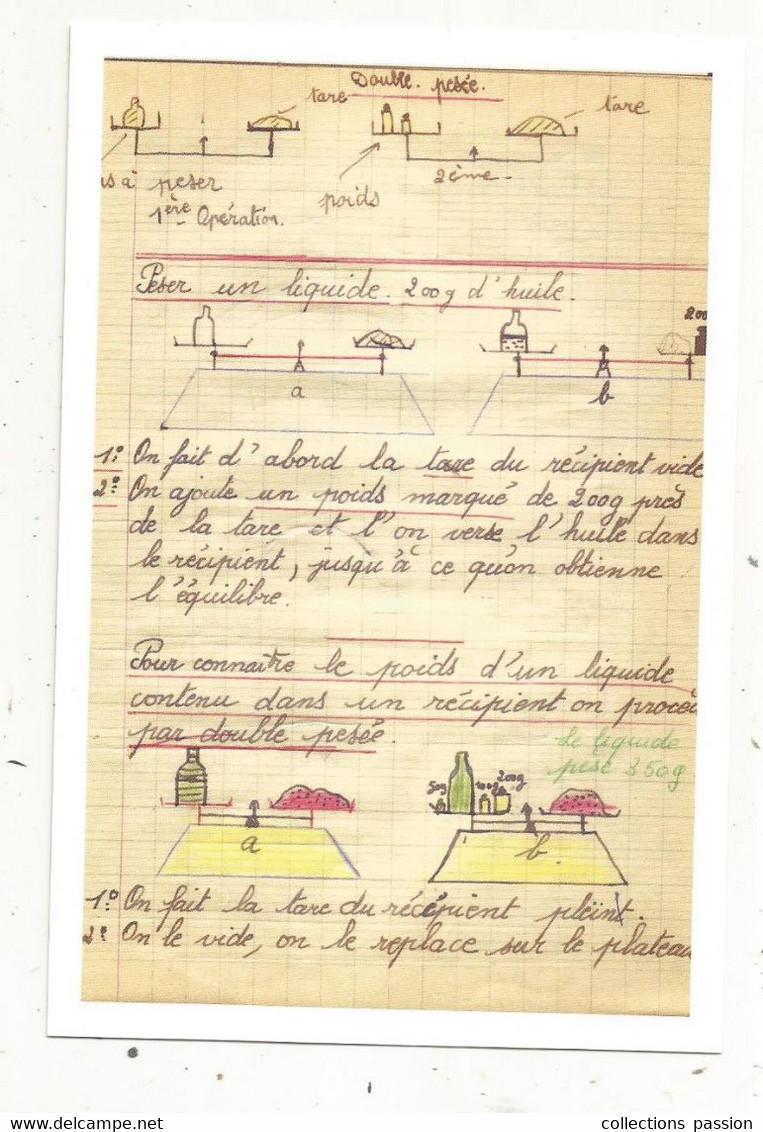 Double. pesée.
tare
tare
s à peser
poids
2ème.
1ère Opération.
Peser un liquide. 200g d'huile.
200
a
b
1.° On fait d'abord la tare du récipient vide
2.° On ajoute un poids marqué de 200g près
de la tare et l'on verse l'huile dans
le récipient, jusqu'à ce qu'on obtienne
l'équilibre.
Pour connaitre le poids d'un liquide
contenu dans un récipient on procè
par double pesée.
Le liquide
pèse 350g
50g
100g
200g
a
b.
1.° On fait la tare du récipient plein.
2° On le vide, on le replace sur le plateau
www.delcampe.net
collections passion